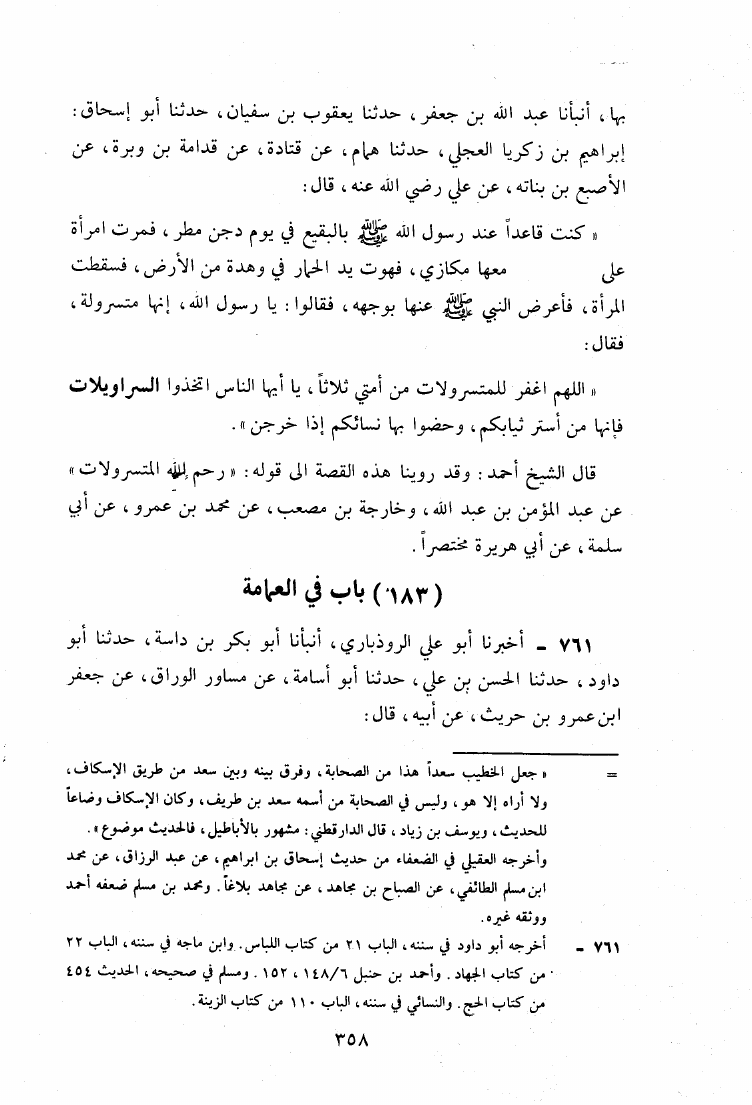 بها، أنبأنا عبد الله بن جعفر، حدثنا يعقوب بن سفيان، حدثنا أبو إسحاق:
إبراهيم بن زكريا العجلي، حدثنا همام، عن قتادة، عن قدامة بن وبرة، عن
الأصبع بن بناته، عن علي رضي الله عنه، قال:
« كنت قاعداً عند رسول الله ﷺ بالبقيع في يوم دجن مطر، فمرت امرأة
على معها مكازي، فهوت يد الحمار في وهدة من الأرض، فسقطت
المرأة، فأعرض النبي ﷺ عنها بوجهه، فقالوا: يا رسول الله، إنها متسرولة،
فقال:
« اللهم اغفر للمتسرولات من أمتي ثلاثاً، يا أيها الناس اتخذوا السراويلات
فإنها من أستر ثيابكم، وحضوا بها نسائكم إذا خرجن».
قال الشيخ أحمد: وقد روينا هذه القصة الى قوله: «رحم الله المتسرولات»
عن عبد المؤمن بن عبد الله، وخارجة بن مصعب، عن محمد بن عمرو، عن أبي
سلمة، عن أبي هريرة مختصراً.
(١٨٣) باب في العمامة
٧٦١ - أخبرنا أبو علي الروذباري، أنبأنا أبو بكر بن داسة، حدثنا أبو
داود، حدثنا الحسن بن علي، حدثنا أبو أسامة، عن مساور الوراق، عن جعفر
ابن عمرو بن حريث، عن أبيه، قال:
= « جعل الخطيب سعداً هذا من الصحابة، وفرق بينه وبين سعد من طريق الإسكاف،
ولا أراه إلا هو، وليس في الصحابة من أسمه سعد بن طريف، وكان الإسكاف وضاعاً
للحديث، ويوسف بن زياد، قال الدارقطني: مشهور بالأباطيل، فالحديث موضوع».
وأخرجه العقيلي في الضعفاء من حديث إسحاق بن ابراهيم، عن عبد الرزاق، عن محمد
ابن مسلم الطائفي، عن الصباح بن مجاهد، عن مجاهد بلاغاً. ومحمد بن مسلم ضعفه أحمد
ووثقه غيره.
٧٦١ - أخرجه أبو داود في سننه، الباب ٢١ من كتاب اللباس. وابن ماجه في سننه، الباب ٢٢
من كتاب الجهاد. وأحمد بن حنبل ١٤٨/٦، ١٥٢. ومسلم في صحيحه، الحديث ٤٥٤
من كتاب الحج. والنسائي في سننه، الباب ١١٠ من كتاب الزينة.
٣٥٨